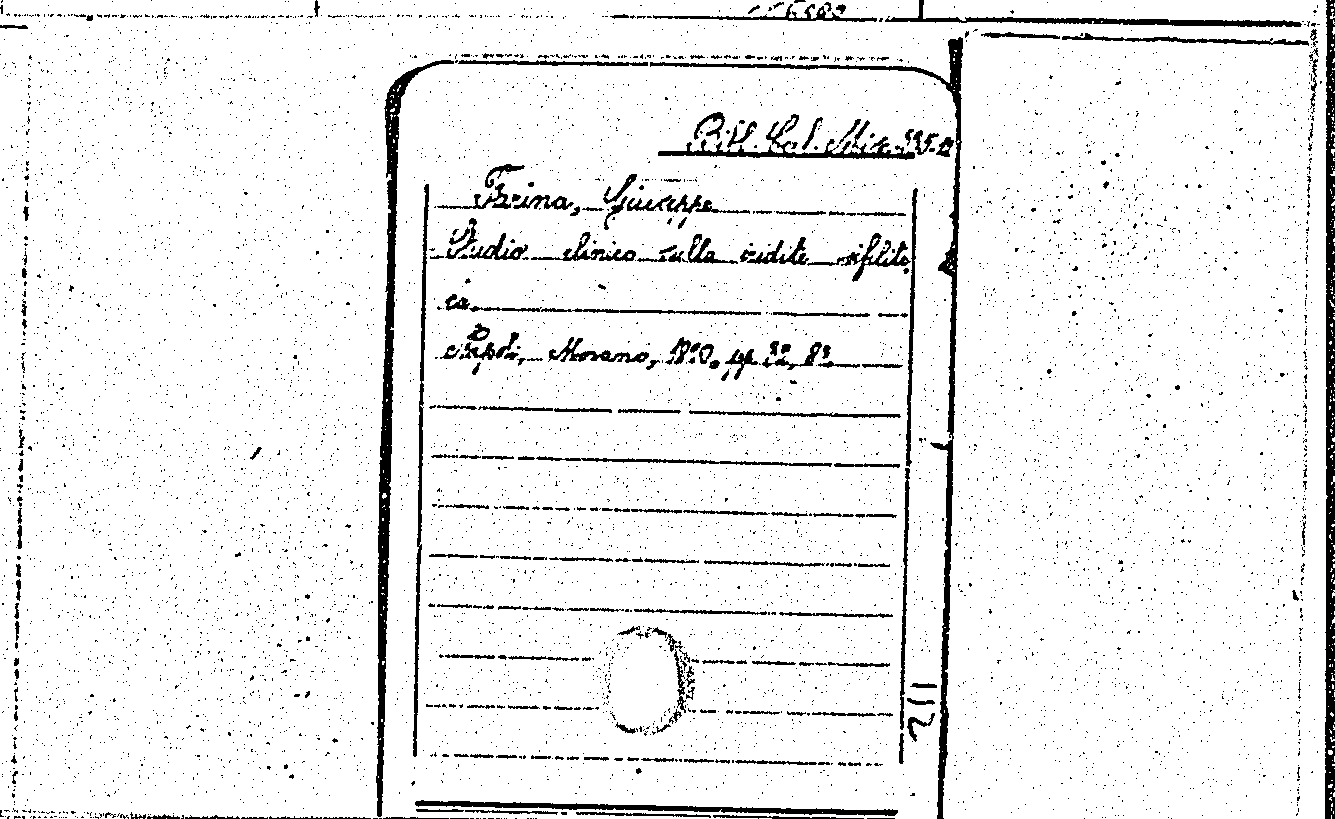 Bibl. Cal. Misc.
Farina, Giuseppe
Studio clinico sulla iridite sifiliti
ca.
Napoli, Morano, pp 32, 8°.
112